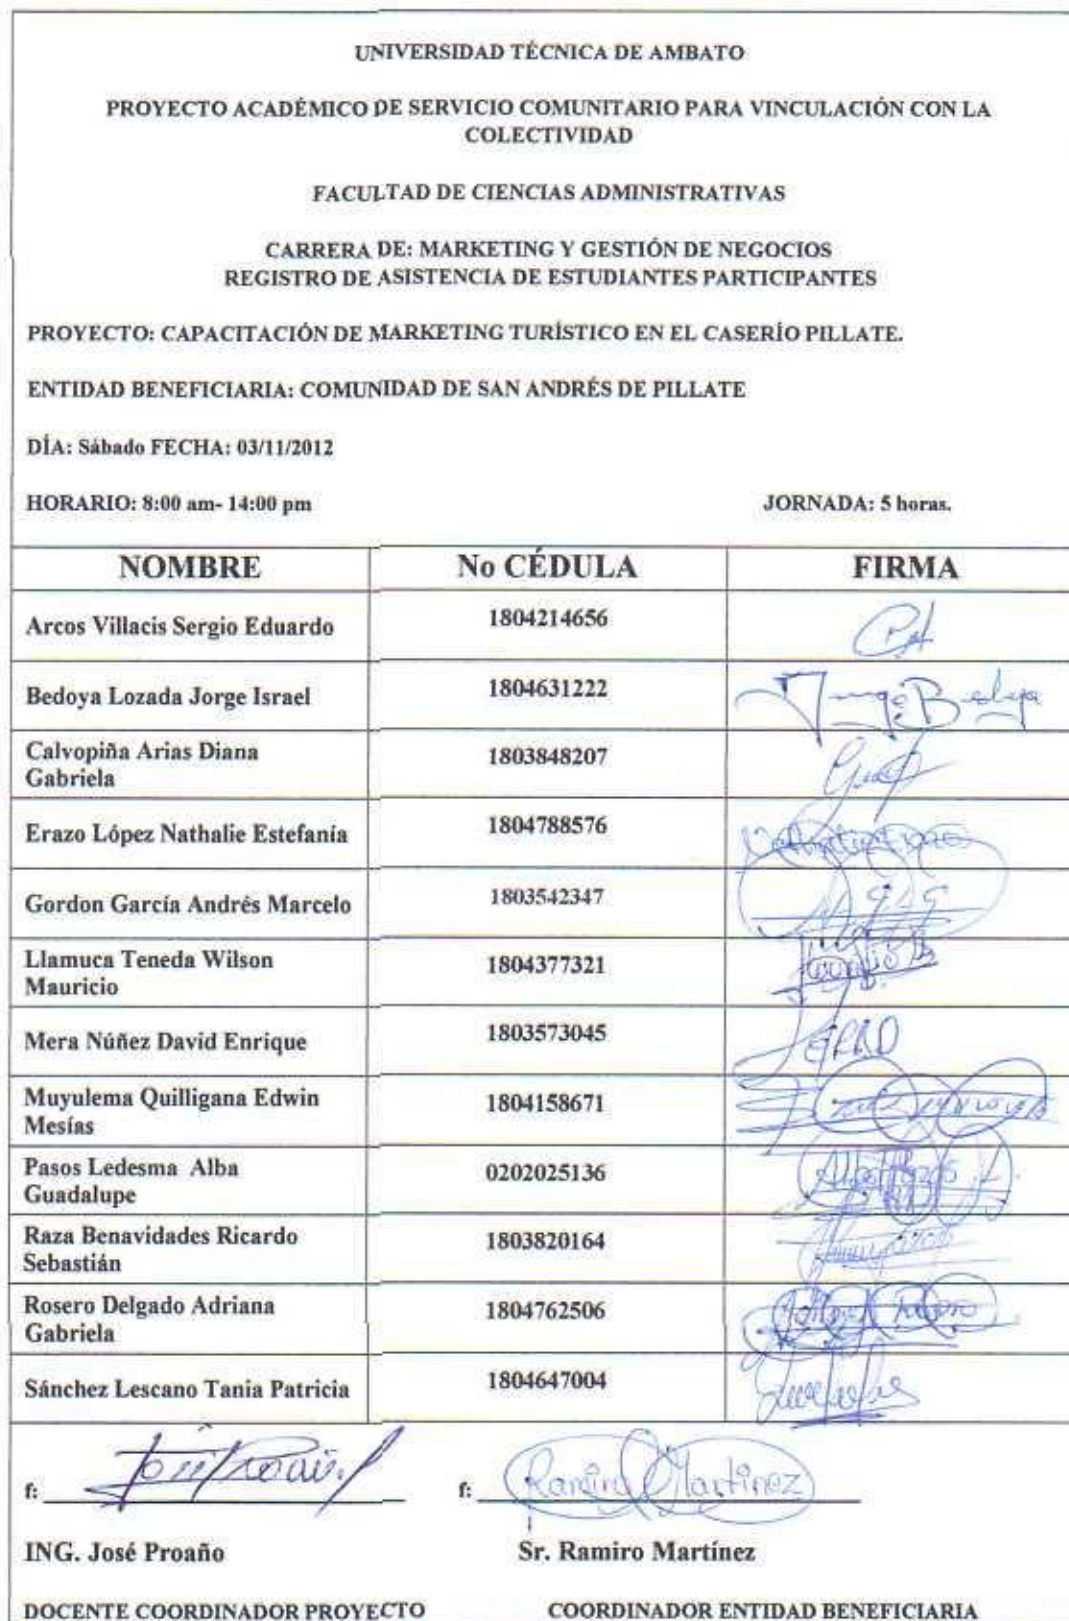 UNIVERSIDAD TÉCNICA DE AMBATO
PROYECTO ACADÉMICO DE SERVICIO COMUNITARIO PARA VINCULACIÓN CON LA
COLECTIVIDAD
FACULTAD DE CIENCIAS ADMINISTRATIVAS
CARRERA DE: MARKETING Y GESTIÓN DE NEGOCIOS
REGISTRO DE ASISTENCIA DE ESTUDIANTES PARTICIPANTES
PROYECTO: CAPACITACIÓN DE MARKETING TURÍSTICO EN EL CASERÍO PILLATE.
ENTIDAD BENEFICIARIA: COMUNIDAD DE SAN ANDRÉS DE PILLATE
DÍA: Sábado FECHA: 03/11/2012
HORARIO: 8:00 am- 14:00 pm JORNADA: 5 horas.
NOMBRE No CÉDULA FIRMA
Arcos Villacis Sergio Eduardo 1804214656
Bedoya Lozada Jorge Israel 1804631222 Jorge Bedoya
Calvopiña Arias Diana
Gabriela 1803848207
Erazo López Nathalie Estefanía 1804788576
Gordon García Andrés Marcelo 1803542347
Llamuca Teneda Wilson
Mauricio 1804377321
Mera Núñez David Enrique 1803573045
Muyulema Quilligana Edwin
Mesías 1804158671
Pasos Ledesma Alba
Guadalupe 0202025136 Alba Pazos L.
Raza Benavidades Ricardo
Sebastián 1803820164
Rosero Delgado Adriana
Gabriela 1804762506
Sánchez Lescano Tania Patricia 1804647004
f: f: Ramiro Martinez
ING. José Proaño Sr. Ramiro Martínez
DOCENTE COORDINADOR PROYECTO COORDINADOR ENTIDAD BENEFICIARIA